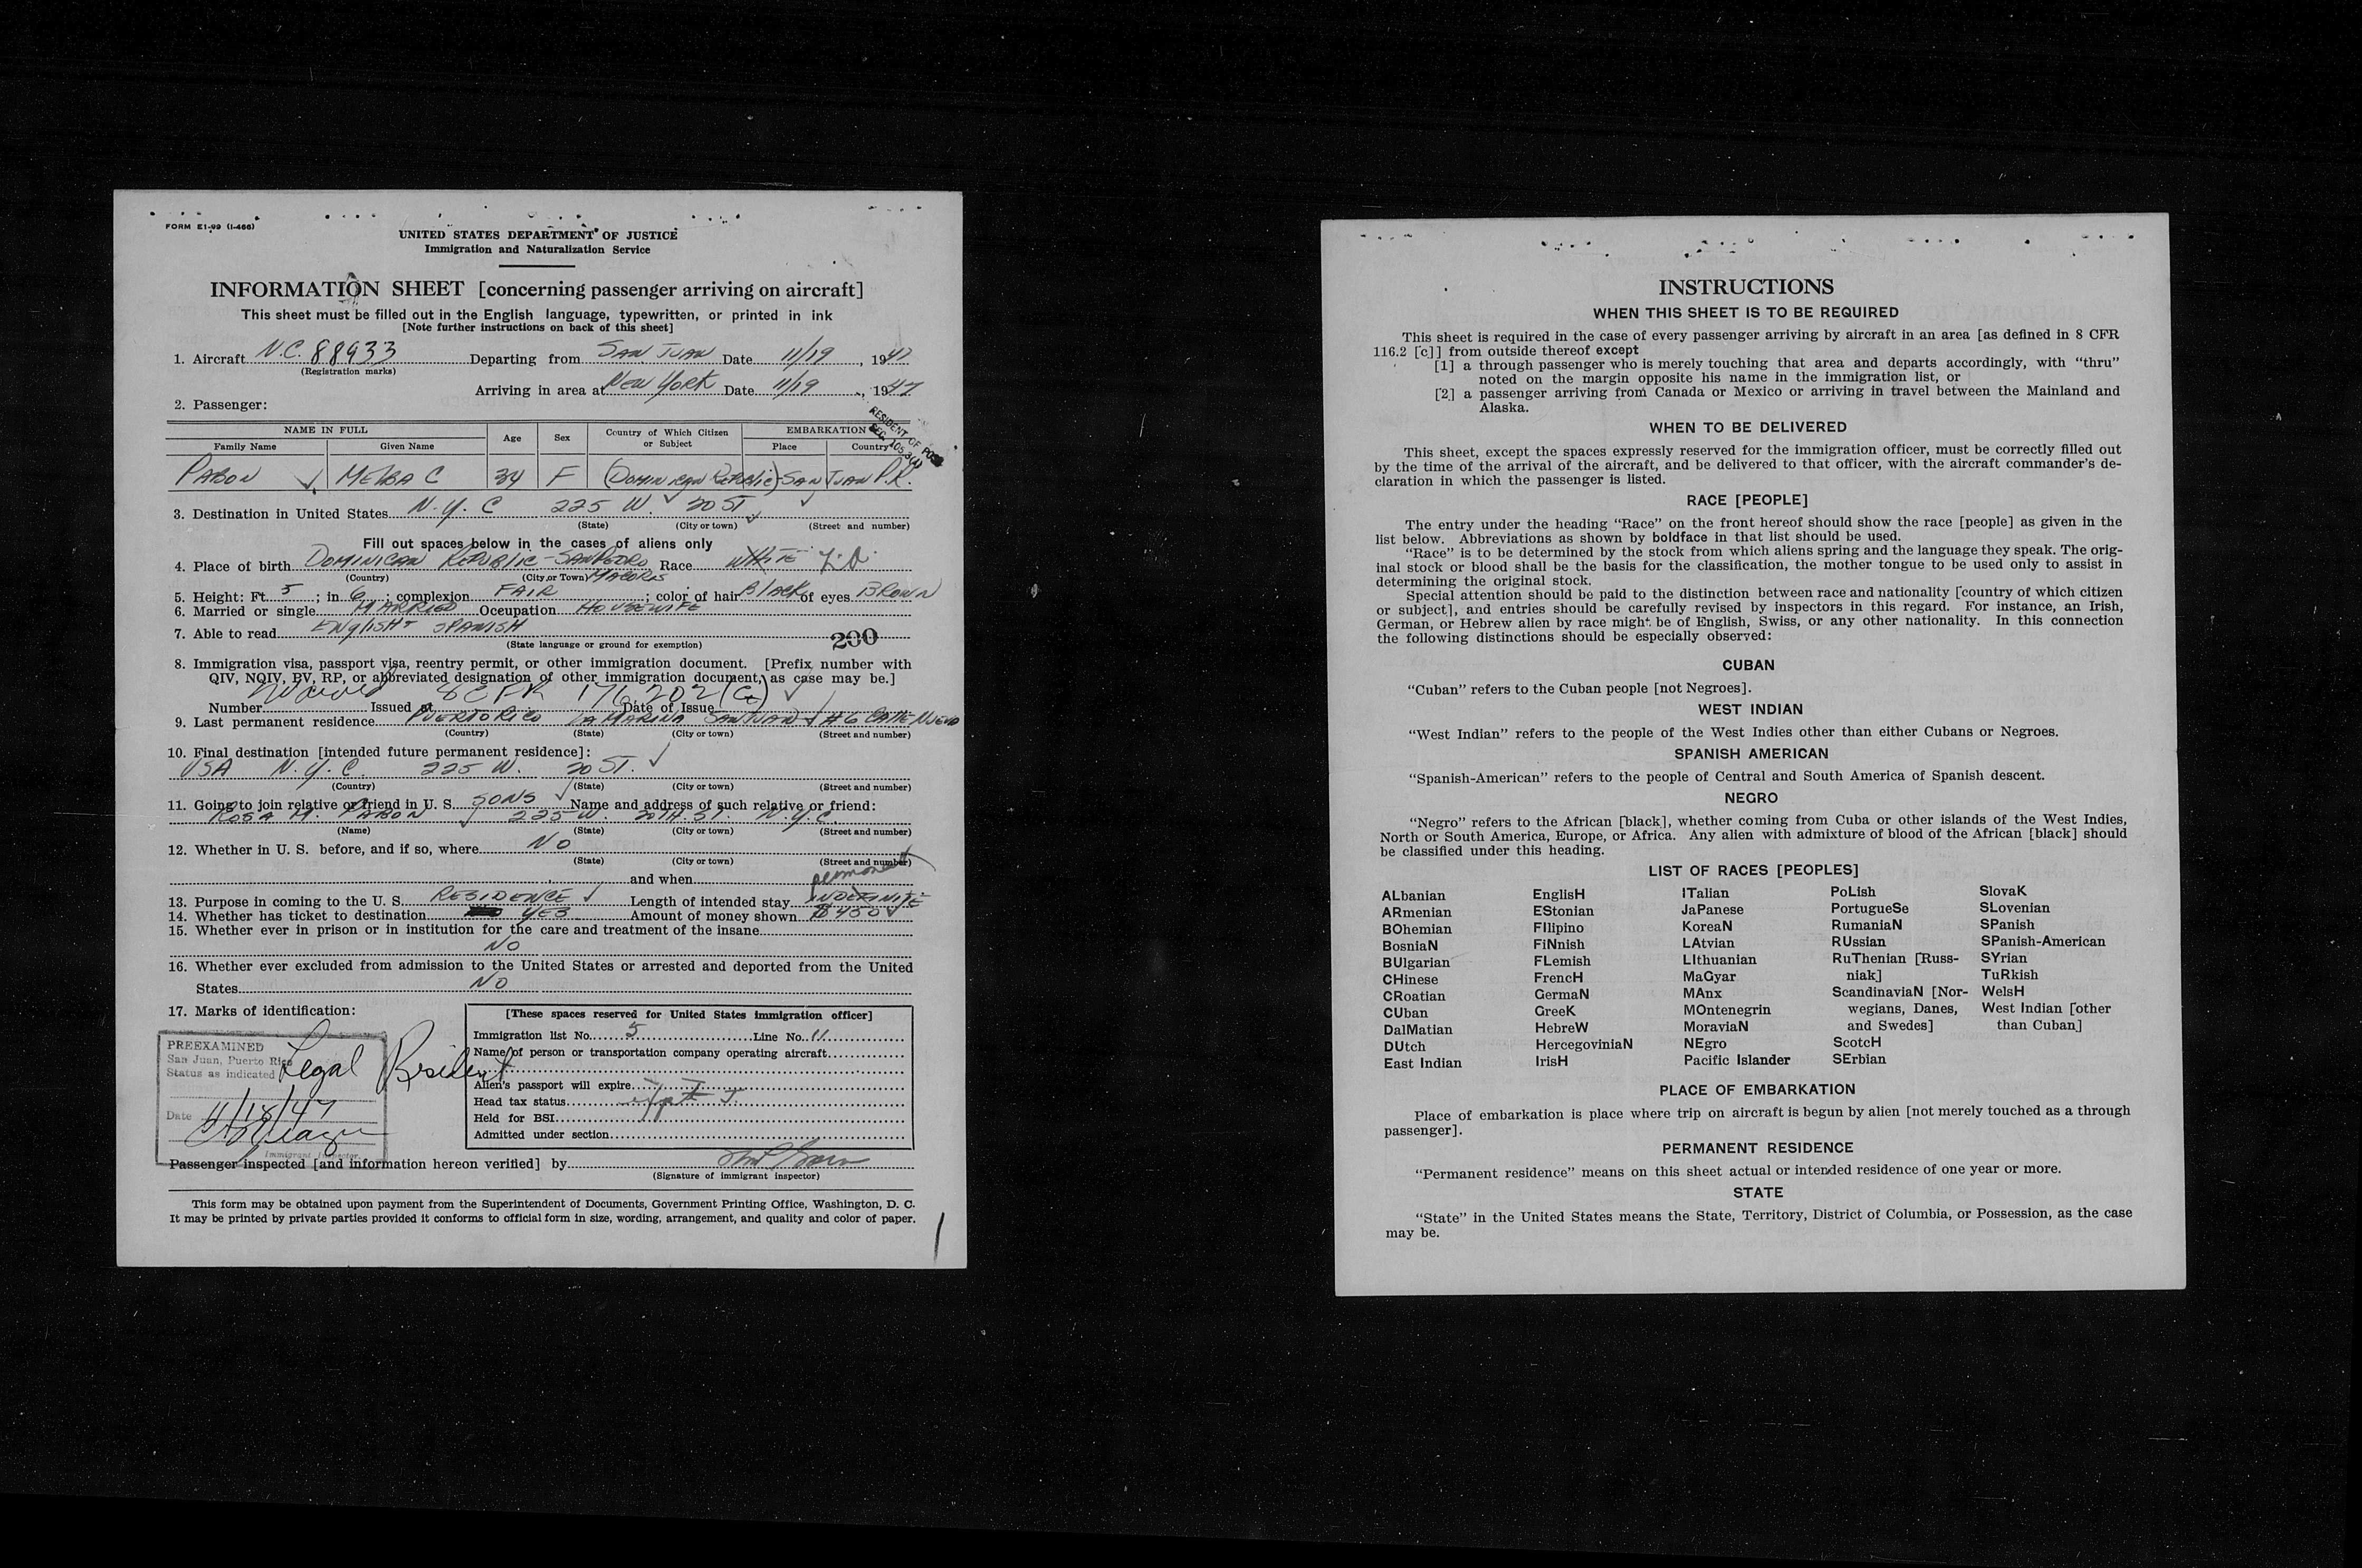 FORM E1-99 (I-466)
UNITED STATES DEPARTMENT OF JUSTICE
Immigration and Naturalization Service
INFORMATION SHEET [concerning passenger arriving on aircraft]
This sheet must be filled out in the English language, typewritten, or printed in ink
[Note further instructions on back of this sheet]
1. Aircraft N.C. 88933 Departing from SAN JUAN Date 11/19, 1947
(Registration marks)
Arriving in area at NEW YORK Date 11/19, 1947
2. Passenger:
RESIDENT OF
NAME IN FULL Age Sex Country of Which Citizen or Subject EMBARKATION
Family Name Given Name Place Country
PABON MELBA C 34 F (DOMINICAN REPUBLIC) SAN JUAN P.R.
3. Destination in United States N.Y.C 225 W. 20 ST.
(State) (City or town) (Street and number)
Fill out spaces below in the cases of aliens only
4. Place of birth DOMINICAN REPUBLIC - SAN PEDRO MACORIS Race WHITE
(Country) (City or Town)
5. Height: Ft. 5; in 6; complexion FAIR; color of hair BLACK of eyes BROWN
6. Married or single MARRIED Occupation HOUSEWIFE
7. Able to read ENGLISH + SPANISH
(State language or ground for exemption) 200
8. Immigration visa, passport visa, reentry permit, or other immigration document. [Prefix number with
QIV, NQIV, PV, RP, or abbreviated designation of other immigration document, as case may be.]
8 CFR 176.202
Number Issued at Date of Issue
9. Last permanent residence PUERTO RICO LA MARINA SAN JUAN #6 CALLE NUEVO
(Country) (State) (City or town) (Street and number)
10. Final destination [intended future permanent residence]:
USA N.Y.C. 225 W. 20 ST.
(Country) (State) (City or town) (Street and number)
11. Going to join relative or friend in U. S. SONS Name and address of such relative or friend:
ROSA M. PABON 225 W. 20TH. ST. N.Y.C.
(Name) (State) (City or town) (Street and number)
12. Whether in U. S. before, and if so, where NO
(State) (City or town) (Street and number)
and when permanent
13. Purpose in coming to the U. S. RESIDENCE Length of intended stay INDEFINITE
14. Whether has ticket to destination YES Amount of money shown $450
15. Whether ever in prison or in institution for the care and treatment of the insane
NO
16. Whether ever excluded from admission to the United States or arrested and deported from the United
States NO
17. Marks of identification:
PREEXAMINED
San Juan, Puerto Rico
Status as indicated Legal Resident
Date 11/18/47
Immigrant Inspector.
[These spaces reserved for United States immigration officer]
Immigration list No. 5 Line No. 11
Name of person or transportation company operating aircraft
Alien's passport will expire
Head tax status
Held for BSI
Admitted under section
Passenger inspected [and information hereon verified] by
(Signature of immigrant inspector)
This form may be obtained upon payment from the Superintendent of Documents, Government Printing Office, Washington, D. C.
It may be printed by private parties provided it conforms to official form in size, wording, arrangement, and quality and color of paper.
INSTRUCTIONS
WHEN THIS SHEET IS TO BE REQUIRED
This sheet is required in the case of every passenger arriving by aircraft in an area [as defined in 8 CFR
116.2 [c]] from outside thereof except
[1] a through passenger who is merely touching that area and departs accordingly, with "thru"
noted on the margin opposite his name in the immigration list, or
[2] a passenger arriving from Canada or Mexico or arriving in travel between the Mainland and
Alaska.
WHEN TO BE DELIVERED
This sheet, except the spaces expressly reserved for the immigration officer, must be correctly filled out
by the time of the arrival of the aircraft, and be delivered to that officer, with the aircraft commander's de-
claration in which the passenger is listed.
RACE [PEOPLE]
The entry under the heading "Race" on the front hereof should show the race [people] as given in the
list below. Abbreviations as shown by boldface in that list should be used.
"Race" is to be determined by the stock from which aliens spring and the language they speak. The orig-
inal stock or blood shall be the basis for the classification, the mother tongue to be used only to assist in
determining the original stock.
Special attention should be paid to the distinction between race and nationality [country of which citizen
or subject], and entries should be carefully revised by inspectors in this regard. For instance, an Irish,
German, or Hebrew alien by race might be of English, Swiss, or any other nationality. In this connection
the following distinctions should be especially observed:
CUBAN
"Cuban" refers to the Cuban people [not Negroes].
WEST INDIAN
"West Indian" refers to the people of the West Indies other than either Cubans or Negroes.
SPANISH AMERICAN
"Spanish-American" refers to the people of Central and South America of Spanish descent.
NEGRO
"Negro" refers to the African [black], whether coming from Cuba or other islands of the West Indies,
North or South America, Europe, or Africa. Any alien with admixture of blood of the African [black] should
be classified under this heading.
LIST OF RACES [PEOPLES]
ALbanian EnglisH ITalian PoLish SlovaK
ARmenian EStonian JaPanese PortugueSe SLovenian
BOhemian FIlipino KoreaN RumaniaN SPanish
BosniaN FiNnish LAtvian RUssian SPanish-American
BUlgarian FLemish LIthuanian RuThenian [Russ- SYrian
CHinese FrencH MaGyar niak] TuRkish
CRoatian GermaN MAnx ScandinaviaN [Nor- WelsH
CUban GreeK MOntenegrin wegians, Danes, West Indian [other
DalMatian HebreW MoraviaN and Swedes] than Cuban]
DUtch HercegoviniaN NEgro ScotcH
East Indian IrisH Pacific Islander SErbian
PLACE OF EMBARKATION
Place of embarkation is place where trip on aircraft is begun by alien [not merely touched as a through
passenger].
PERMANENT RESIDENCE
"Permanent residence" means on this sheet actual or intended residence of one year or more.
STATE
"State" in the United States means the State, Territory, District of Columbia, or Possession, as the case
may be.